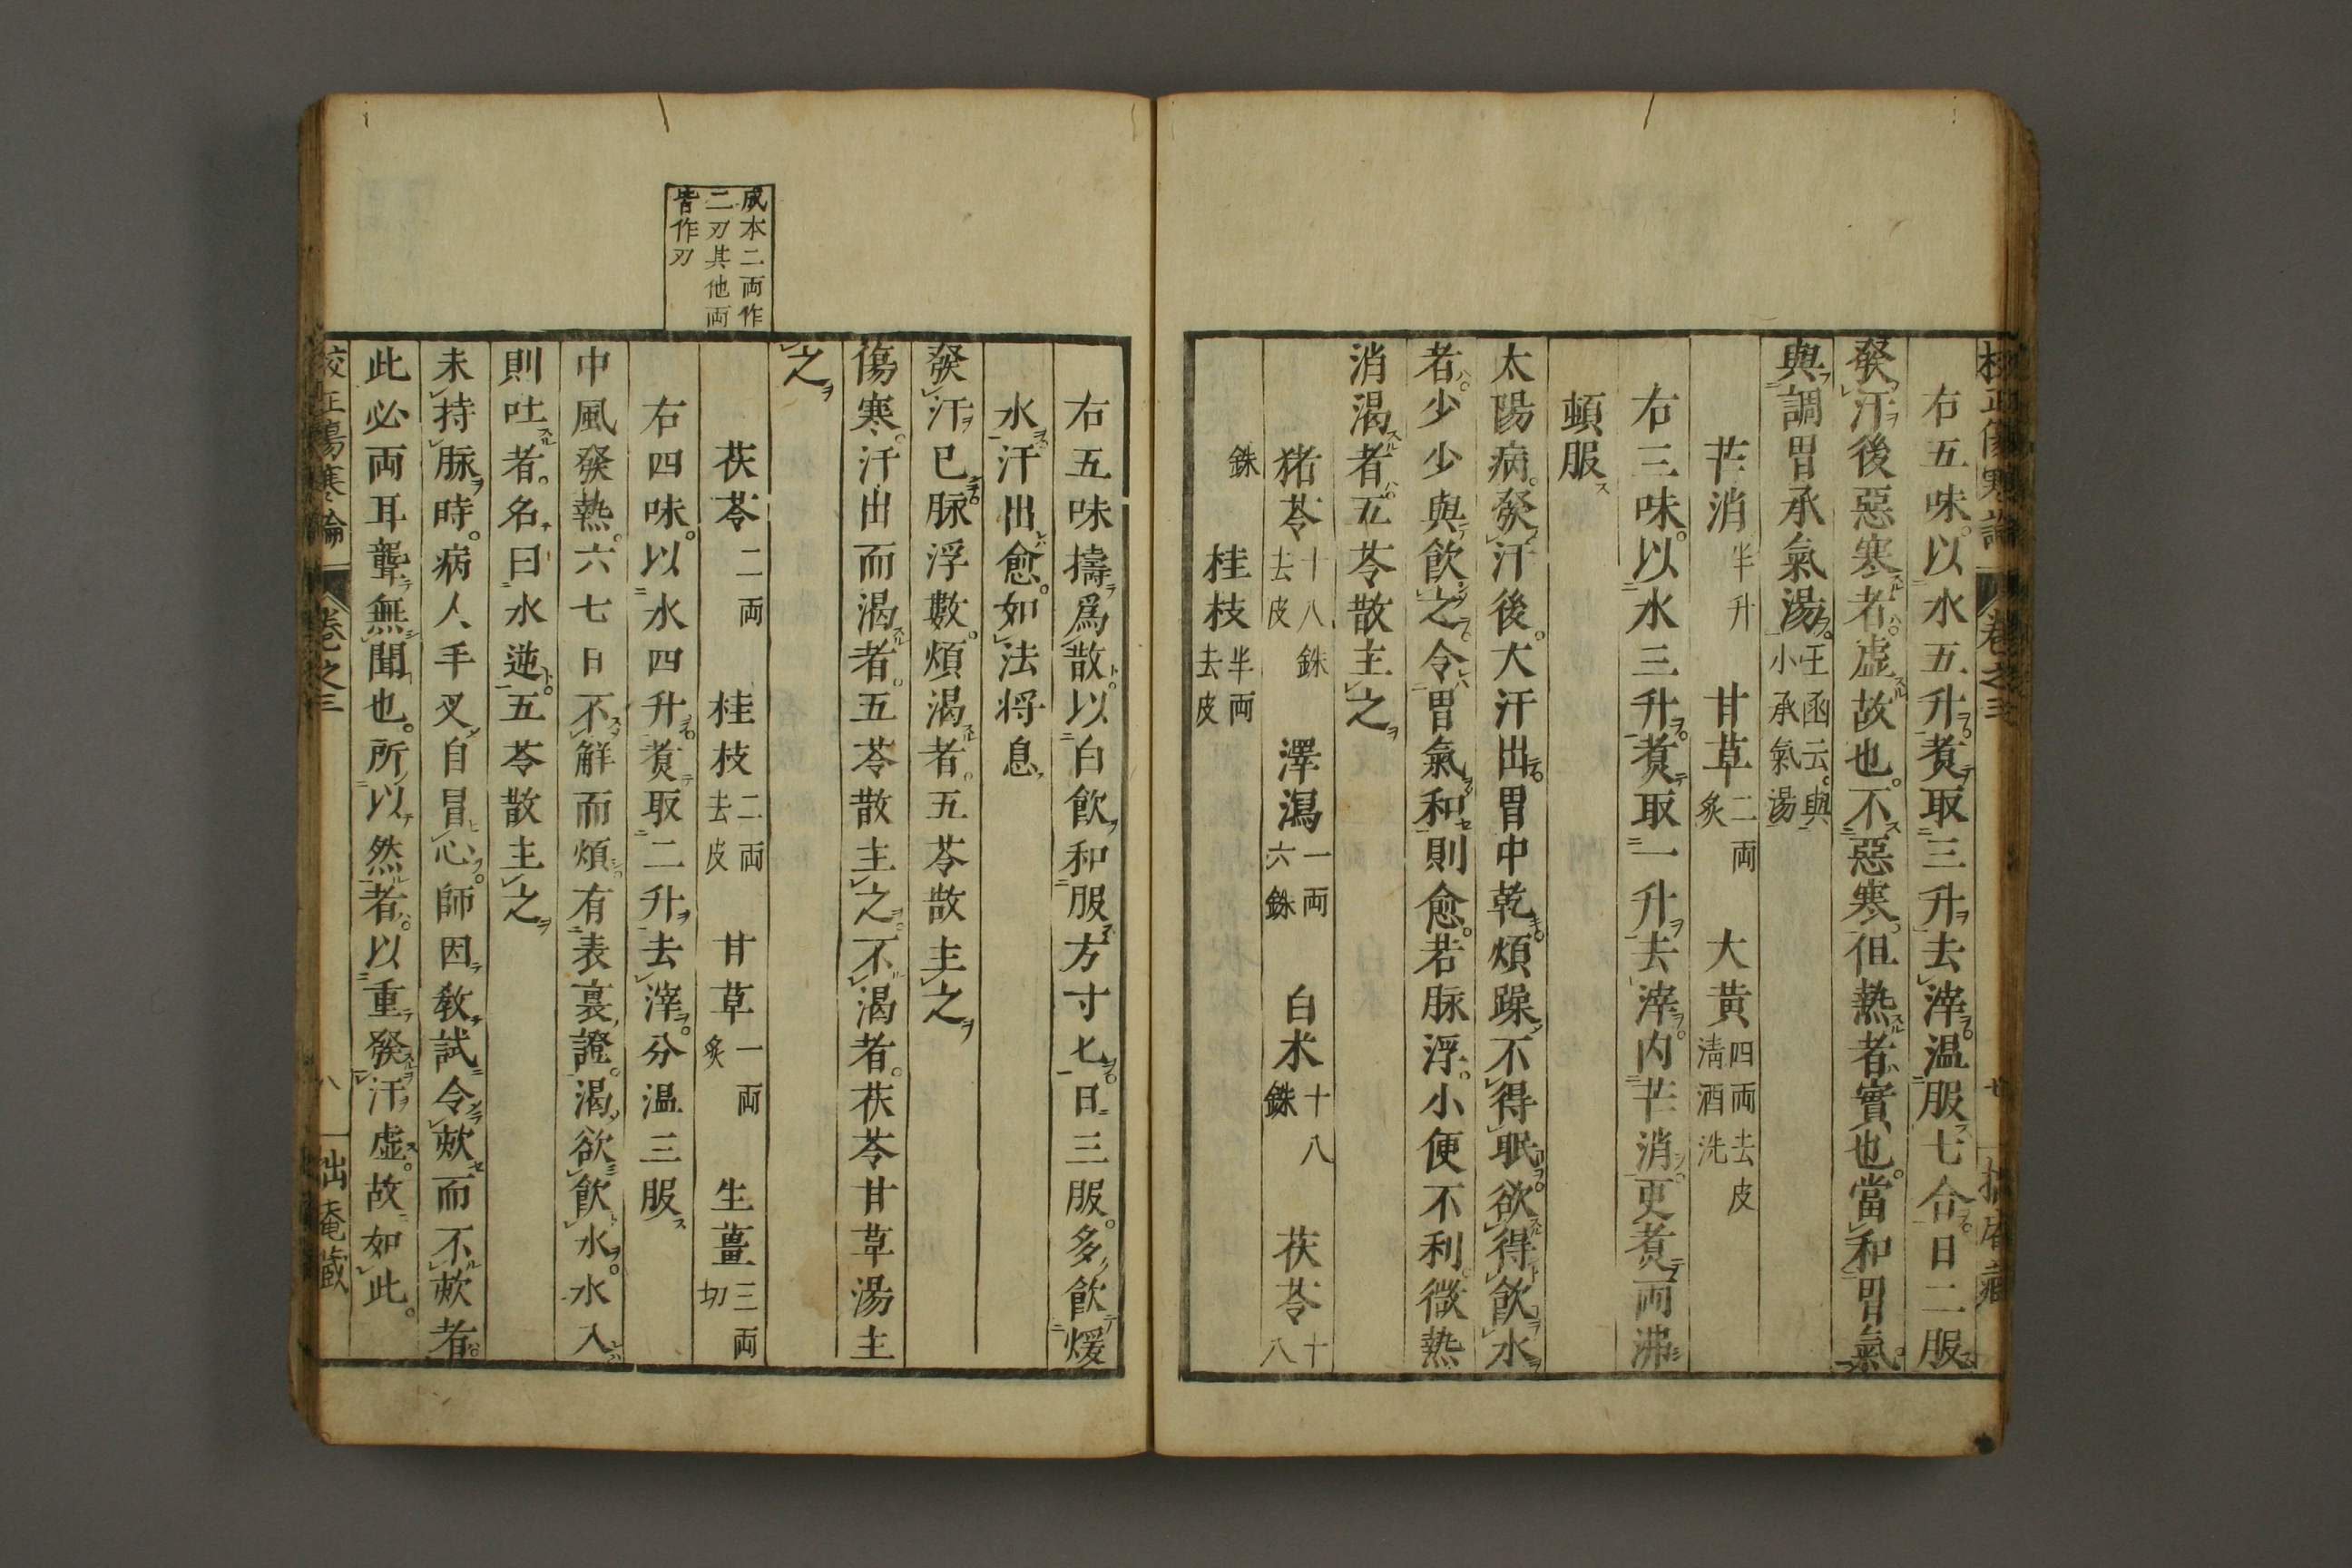 校正傷寒論 卷之三 七 拙庵藏
右五味。以水五升。煑取三升去滓。温服七合。日二服
發汗後惡寒者。虚故也。不惡寒。但熱者實也。當和胃氣。
與調胃承氣湯。玉函云。與小承氣湯
芒消半升 甘草二両炙 大黄四両去皮清酒洗
右三味。以水三升。煑取一升去滓。内芒消。更煑両沸
頓服
太陽病。發汗後。大汗出。胃中乾。煩躁不得眠。欲得飲水
者。少少與飲之。令胃氣和則愈。若脉浮。小便不利。微熱
消渇者。五苓散主之
猪苓十八銖去皮 澤瀉一両六銖 白朮十八銖 茯苓十八
銖 桂枝半両去皮
成本二両作
二刃其他両
皆作刃
右五味擣爲散。以白飲和服方寸匕。日三服。多飲煖
水。汗出愈。如法将息
發汗已。脉浮數。煩渇者。五苓散主之
傷寒。汗出而渇者。五苓散主之。不渇者。茯苓甘草湯主
之
茯苓二両 桂枝二両去皮 甘草一両炙 生薑三両切
右四味。以水四升。煑取二升去滓。分温三服
中風發熱。六七日不解而煩。有表裏證。渇欲飲水。水入
則吐者。名曰水逆。五苓散主之
未持脉時。病人手叉自冒心。師因教試令欬而不欬者。
此必両耳聾無聞也。所以然者。以重發汗虚。故如此。
校正傷寒論 卷之三 八 拙庵藏